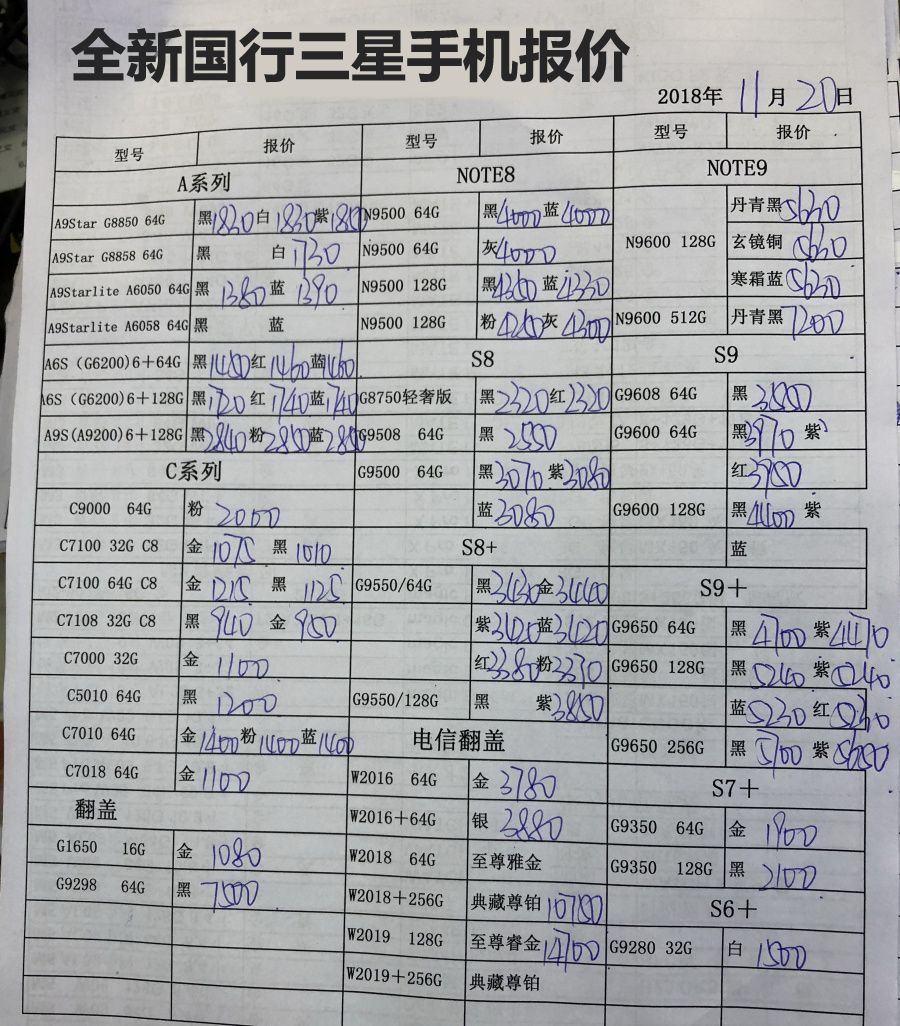 全新国行三星手机报价
2018年 11月 20日
型号 报价
A系列
A9Star G8850 64G 黑1830白1830紫18
A9Star G8858 64G 黑 白1730
A9Starlite A6050 64G 黑1380蓝1390
A9Starlite A6058 64G 黑 蓝
A6S（G6200)6+64G 黑1450红1460蓝1460
A6S（G6200)6+128G 黑1720红1740蓝1740
A9S(A9200)6+128G 黑2840粉2850蓝28
C系列
C9000 64G 粉 2000
C7100 32G C8 金 1075 黑 1010
C7100 64G C8 金 1215 黑 1125
C7108 32G C8 黑 940 金 950
C7000 32G 金 1100
C5010 64G 黑 1200
C7010 64G 金1400粉1400蓝1400
C7018 64G 金1100
翻盖
G1650 16G 金 1080
G9298 64G 黑 7500
型号 报价
NOTE8
N9500 64G 黑4000蓝4000
N9500 64G 灰4000
N9500 128G 黑4350蓝4330
N9500 128G 粉4250灰4300
S8
G8750轻奢版 黑2320红2320
G9508 64G 黑 2550
G9500 64G 黑3070紫3080
蓝3080
S8+
G9550/64G 黑3430金3440
紫3420蓝3420
红3380粉3370
G9550/128G 黑 紫3850
电信翻盖
W2016 64G 金 3780
W2016+64G 银 3880
W2018 64G 至尊雅金
W2018+256G 典藏尊铂10750
W2019 128G 至尊睿金14700
W2019+256G 典藏尊铂
型号 报价
NOTE9
N9600 128G 丹青黑5630
玄镜铜5630
寒霜蓝5630
N9600 512G 丹青黑7200
S9
G9608 64G 黑 3550
G9600 64G 黑3970 紫
红3950
G9600 128G 黑4400 紫
蓝
S9+
G9650 64G 黑 4700 紫4470
G9650 128G 黑 5240 紫5240
蓝5230 红5230
G9650 256G 黑 5700 紫5650
S7+
G9350 64G 金 1900
G9350 128G 黑 2100
S6+
G9280 32G 白 1500